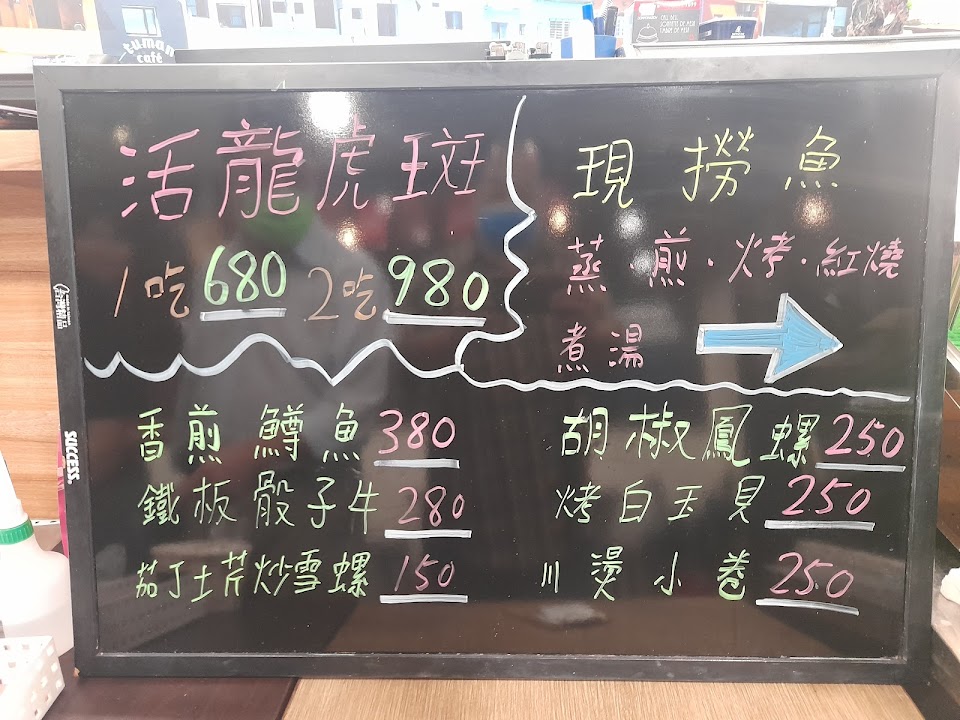 活龍虎斑
1吃 680 2吃 980
現撈魚
蒸 煎·烤·紅燒
煮湯
香煎鱒魚 380
鐵板骰子牛 280
茄丁土芹炒雪螺 150
胡椒鳳螺 250
烤白玉貝 250
川燙小卷 250
SUCCESS
tuman
café